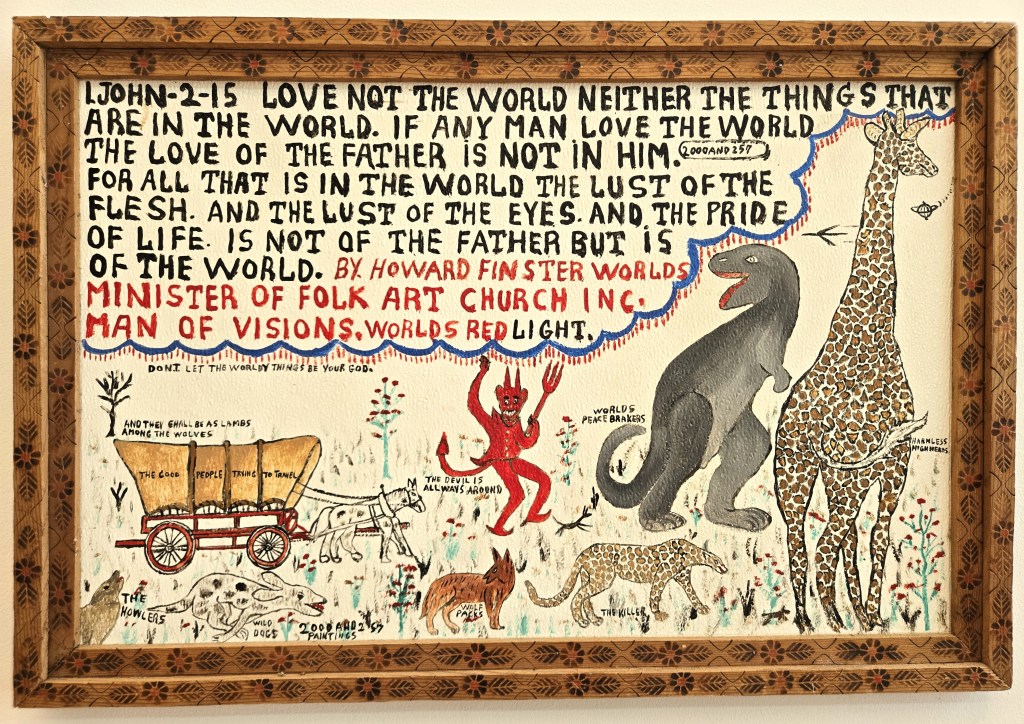 1.JOHN-2-15 LOVE NOT THE WORLD NEITHER THE THINGS THAT
ARE IN THE WORLD. IF ANY MAN LOVE THE WORLD
THE LOVE OF THE FATHER IS NOT IN HIM. 2000 AND 257
FOR ALL THAT IS IN THE WORLD THE LUST OF THE
FLESH. AND THE LUST OF THE EYES. AND THE PRIDE
OF LIFE. IS NOT OF THE FATHER BUT IS
OF THE WORLD. BY. HOWARD FINSTER WORLDS
MINISTER OF FOLK ART CHURCH INC.
MAN OF VISIONS. WORLDS RED LIGHT.
DONT LET THE WORLDY THINGS BE YOUR GOD.
AND THEY SHALL BE AS LAMBS
AMONG THE WOLVES
WORLDS
PEACE BRAKERS
HARMLESS
HIGH HEADS
THE GOOD PEOPLE TRYING TO TRAVEL
THE DEVIL IS
ALLWAYS AROUND
THE
HOWLERS
WILD
DOGS
2000 AND 257
PAINTINGS
WOLF
PACKS
THE KILLER